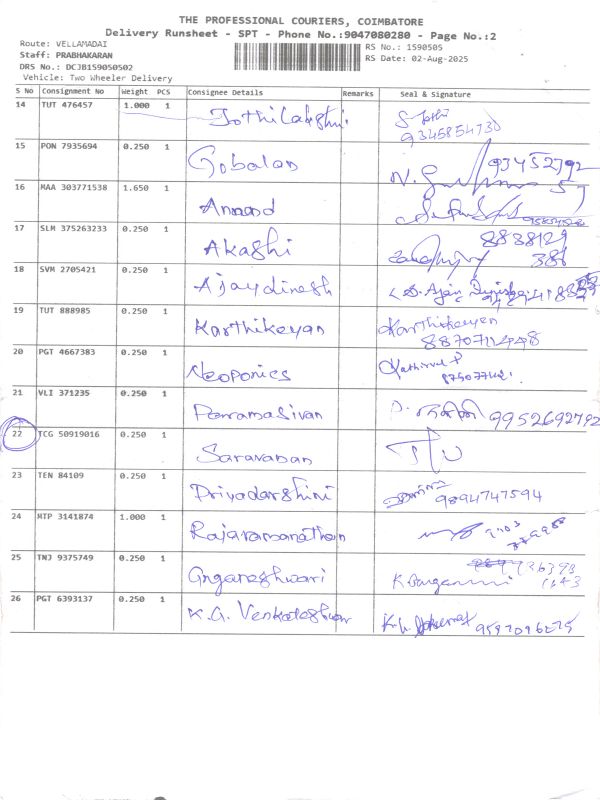 THE PROFESSIONAL COURIERS, COIMBATORE
Delivery Runsheet - SPT - Phone No.:9047080280 - Page No.:2
Route: VELLAMADAI
RS No.: 1590505
Staff: PRABHAKARAN
RS Date: 02-Aug-2025
DRS No.: DCJB159050502
Vehicle: Two Wheeler Delivery
S No Consignment No Weight PCS Consignee Details Remarks Seal & Signature
14 TUT 476457 1.000 1 Jothilakshmi
9345854730
15 PON 7935694 0.250 1 Gobalan
16 MAA 303771538 1.650 1 Annand
17 SLM 375263233 0.250 1 Akashi 8838129
386
18 SVM 2705421 0.250 1 Ajaydinesh
19 TUT 888985 0.250 1 Karthikeyan Karthikeyen
20 PGT 4667383 0.250 1 Neoponics
21 VLI 371235 0.250 1 Parramasivan 9952692792
22 TCG 50919016 0.250 1 Saravanan
23 TEN 84109 0.250 1 Priyadarshini 9894747594
24 MTP 3141874 1.000 1 Rajaramanathan
25 TNJ 9375749 0.250 1 Gngareshwari
26 PGT 6393137 0.250 1 K.G. Venkateshwar